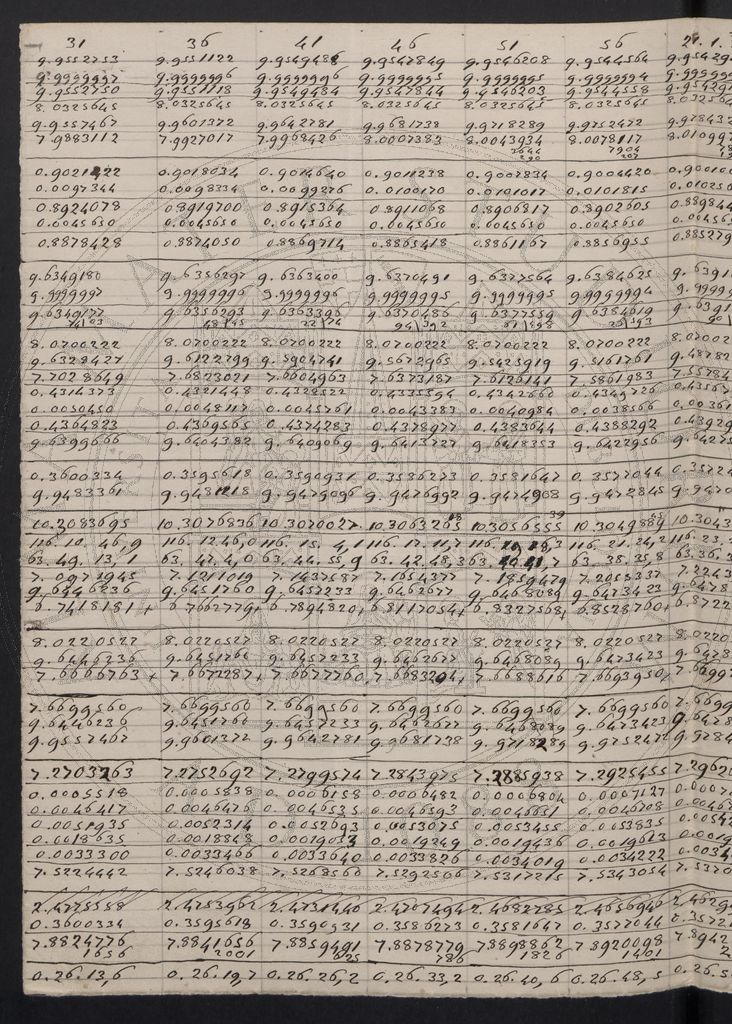 31 36 41 46 51 56 21. 1.
9.9552753 9.9551122 9.9549488 9.9547849 9.9546208 9.9544564
9.9999997 9.9999996 9.9999996 9.9999995 9.9999995 9.9999994
9.9552750 9.9551118 9.9549484 9.9547844 9.9546203 9.9544558
8.0325645 8.0325645 8.0325645 8.0325645 8.0325645 8.0325645
9.9557467 9.9601372 9.9642781 9.9681738 9.9718289 9.9752472
7.9883112 7.9927017 7.9968426 8.0007383 8.0043934 8.0078117
0.9018034 0.9014640 0.9011238 0.9007834 0.9004420
0.0097344 0.0098334 0.0099276 0.0100170 0.0101017 0.0101815
0.8924078 0.8919700 0.8915364 0.8911068 0.8906817 0.8902605
0.0045650 0.0045650 0.0045650 0.0045650 0.0045650 0.0045650
0.8878428 0.8874050 0.8869714 0.8865418 0.8861167 0.8856955
9.6349180 9.6356297 9.6363400 9.6370491 9.6377564 9.6384625
9.9999997 9.9999996 9.9999996 9.9999995 9.9999995 9.9999994
9.6349177 9.6356293 9.6363396 9.6370486 9.6377559 9.6384619
8.0700222 8.0700222 8.0700222 8.0700222 8.0700222 8.0700222
9.6328427 9.6122799 9.5904741 9.5672965 9.5425919 9.5161761
7.7028649 7.6823021 7.6604963 7.6373187 7.6126141 7.5861983
0.4314373 0.4321448 0.4328522 0.4335594 0.4342660 0.4349726
0.0050450 0.0048117 0.0045761 0.0043383 0.0040984 0.0038566
0.4364823 0.4369565 0.4374283 0.4378977 0.4383644 0.4388292
9.6399666 9.6404382 9.6409069 9.6413727 9.6418353 9.6422956
0.3600334 0.3595618 0.3590931 0.3586273 0.3581647 0.3577044
9.9483361 9.9481218 9.9479096 9.9476992 9.9474908 9.9472845
10.3083695 10.3076836 10.3070027 10.3063265 10.3056555 10.3049889
116. 10. 46, 9 116. 12 46, 0 116. 15. 4, 1 116. 17. 11, 7 116. 21. 24, 2
63. 49. 13, 1 63. 47. 4, 0 63. 44. 55, 9 63. 42. 48, 3 63. 38. 35, 8
7.0971945 7.1211019 7.1437587 7.1654377 7.1859479 7.2055337
9.6446236 9.6451760 9.6457233 9.6462677 9.6468089 9.6473423
6.7418181 + 6.7662779 + 6.7894820 + 6.8117054 + 6.8327568 + 6.8528760 +
8.0220527 8.0220527 8.0220527 8.0220527 8.0220527 8.0220527
9.6446236 9.6451760 9.6457233 9.6462677 9.6468089 9.6473423
7.6666763 + 7.6672287 + 7.6677760 7.6683204 7.6688616 7.6693950
7.6699560 7.6699560 7.6699560 7.6699560 7.6699560 7.6699560
9.6446236 9.6451760 9.6457233 9.6462677 9.6468089 9.6473423
9.9557467 9.9601372 9.9642781 9.9681738 9.9718289 9.9752472
7.2703263 7.2752692 7.2799574 7.2843975 7.2885938 7.2925455
0.0005518 0.0005838 0.0006158 0.0006482 0.0006804 0.0007127
0.0046417 0.0046476 0.0046535 0.0046593 0.0046651 0.0046708
0.0051935 0.0052314 0.0052693 0.0053075 0.0053455 0.0053835
0.0018635 0.0018848 0.0019053 0.0019249 0.0019436 0.0019613
0.0033300 0.0033466 0.0033640 0.0033826 0.0034019 0.0034222
7.5224442 7.5246038 7.5268560 7.5292506 7.5317215 7.5343054
2.4775558 2.4753962 2.4731440 2.4707494 2.4682785 2.4656946
0.3600334 0.3595618 0.3590931 0.3586273 0.3581647 0.3577044
7.8824776 7.8841656 7.8859491 7.8878779 7.8898862 7.8920098
1656 2001 625 786 1826 1401
0. 26. 13, 6 0. 26. 19, 7 0. 26. 26, 2 0. 26. 33, 2 0. 26. 40, 6 0. 26. 48, 5